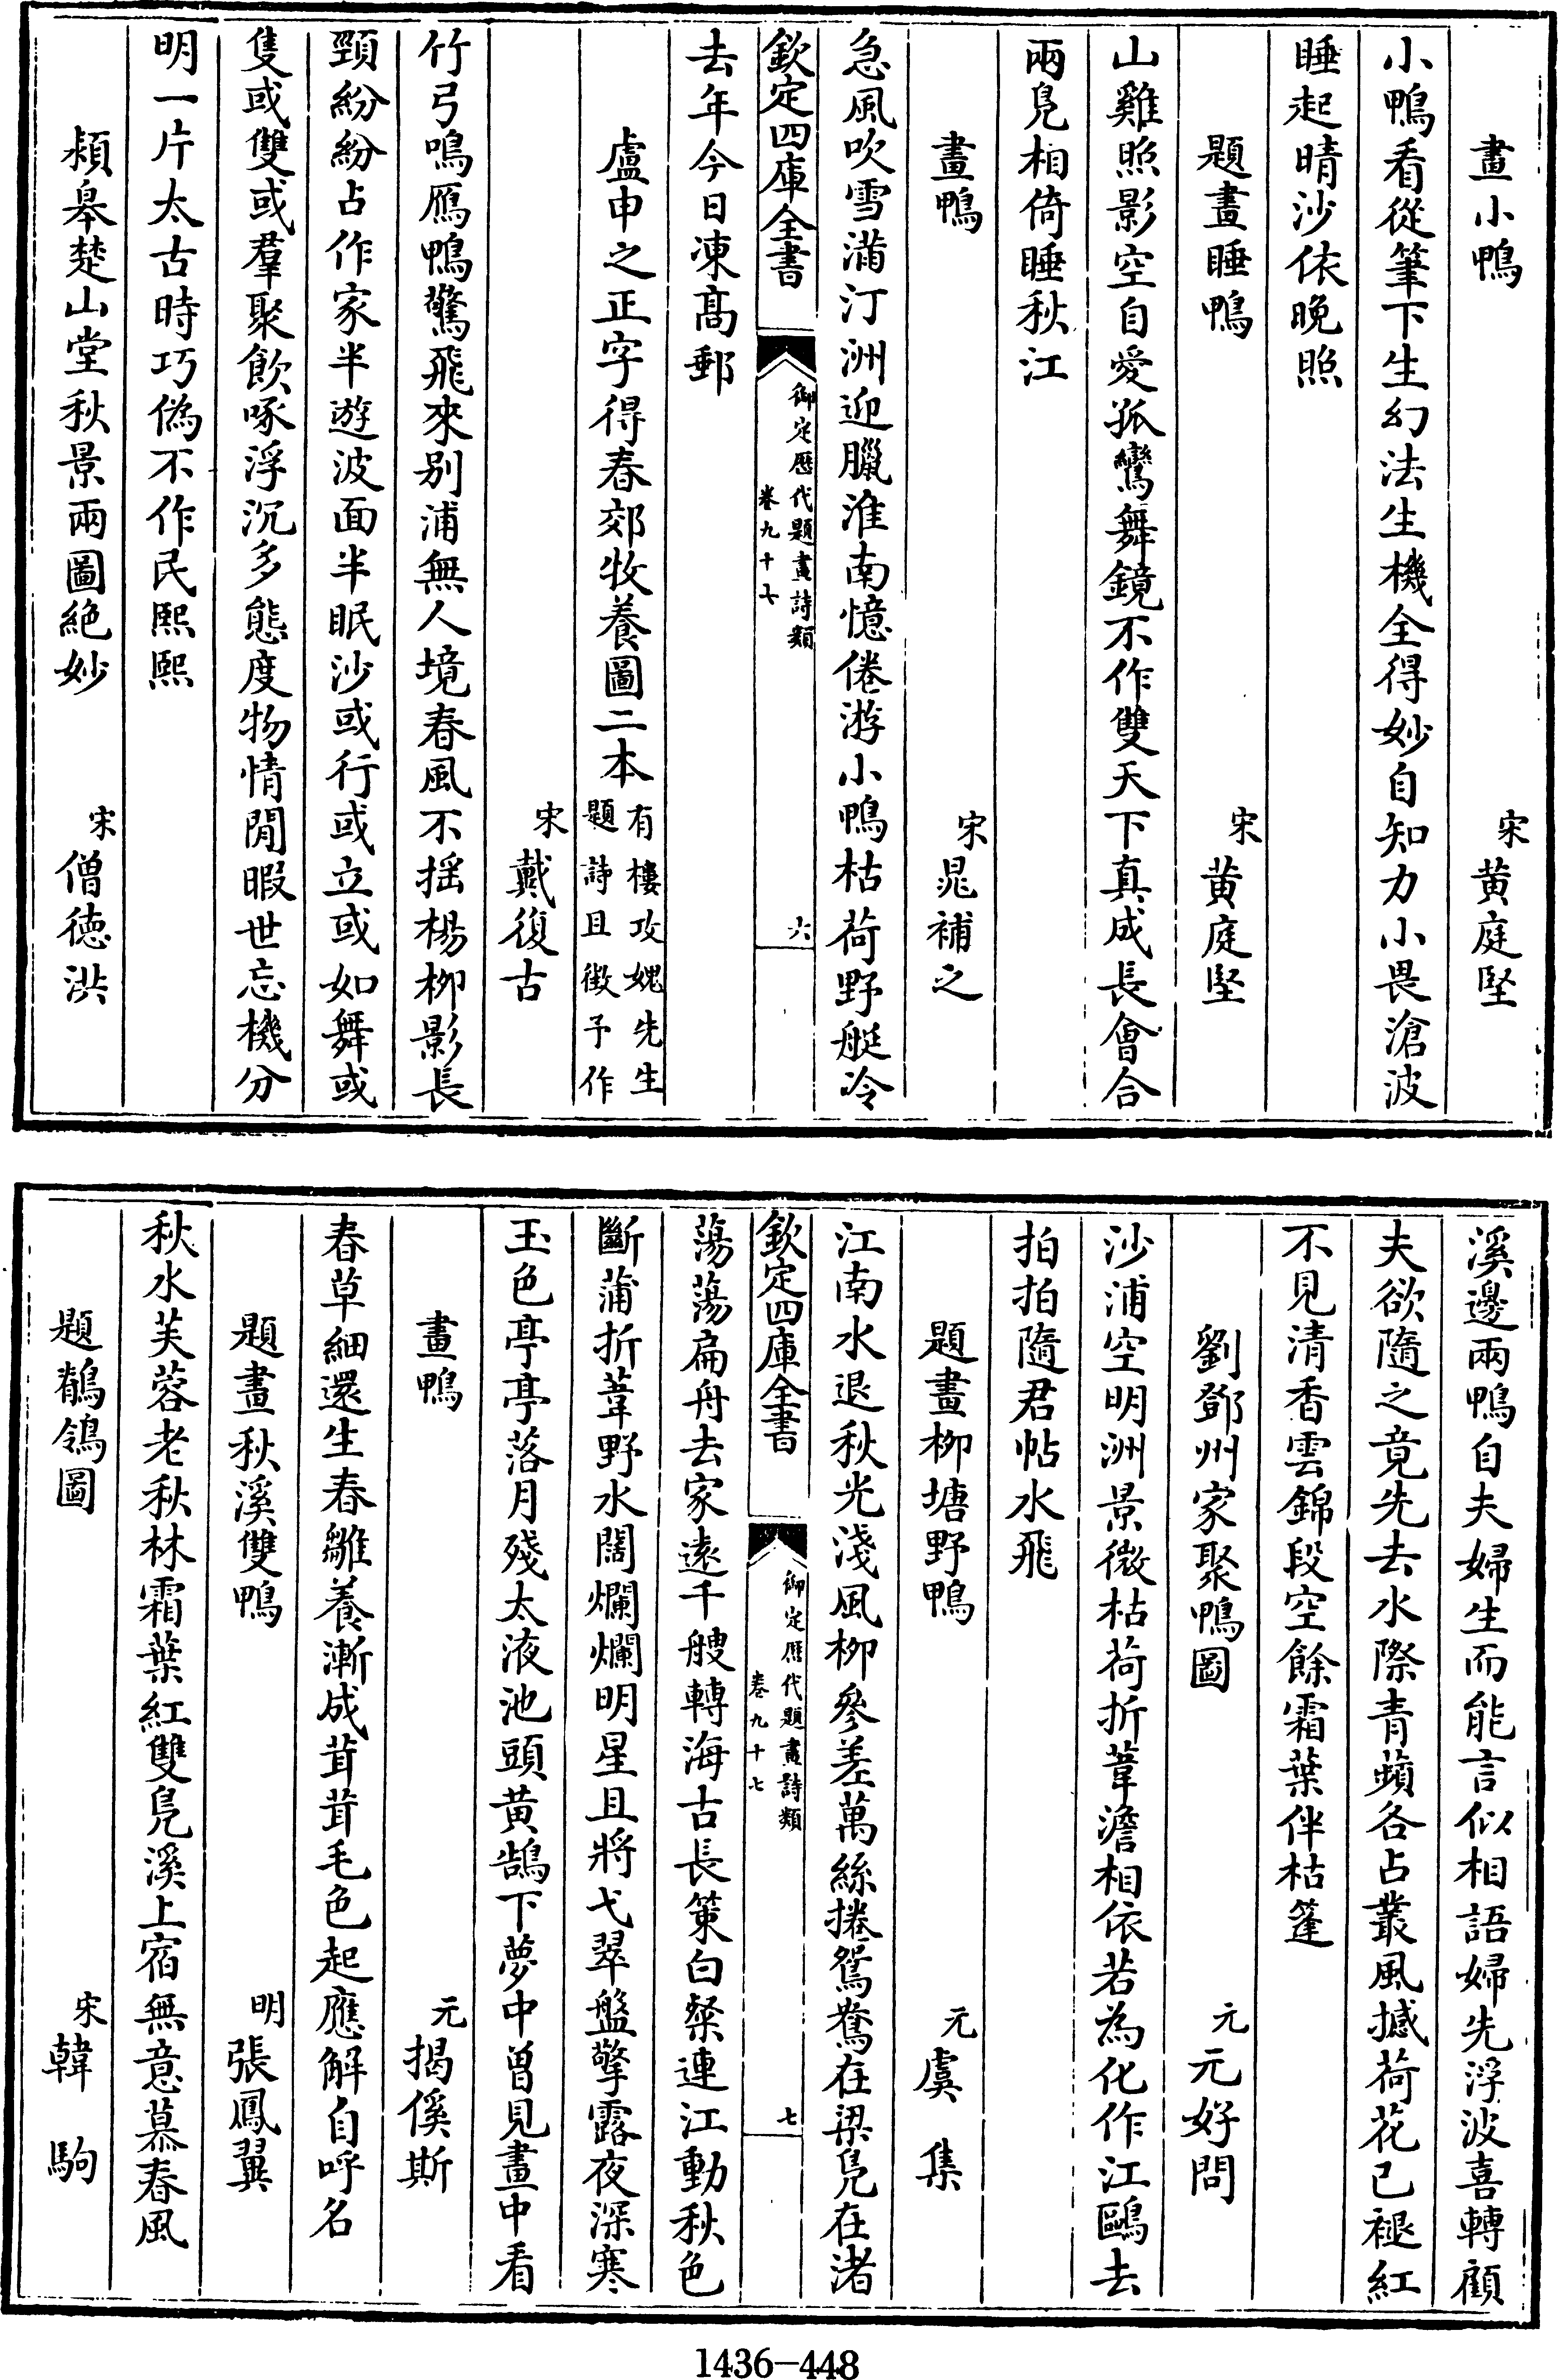 畫小鴨 宋黄庭堅
小鴨看從筆下生幻法生機全得妙自知力小畏滄波
睡起晴沙依晚照
題畫睡鴨 宋黄庭堅
山雞照影空自愛孤鸞舞鏡不作雙天下真成長會合
兩鳬相倚睡秋江
畫鴨 宋晁補之
急風吹雪滿汀洲迎臘淮南憶倦游小鴨枯荷野艇冷
欽定四庫全書 御定歴代題畫詩類 卷九十七 六
去年今日凍髙郵
盧申之正字得春郊牧養圖二本有樓攻媿先生題詩且徴予作
宋戴復古
竹弓鳴鴈鴨驚飛來别浦無人境春風不揺楊柳影長
頸紛紛占作家半遊波面半眠沙或行或立或如舞或
隻或雙或羣聚飲啄浮沉多態度物情閒暇世忘機分
明一片太古時巧偽不作民熙熙
頴皋楚山堂秋景兩圖絶妙 宋僧徳洪
溪邊兩鴨自夫婦生而能言似相語婦先浮波喜轉顧
夫欲隨之竟先去水際青蘋各占叢風撼荷花已褪紅
不見清香雲錦段空餘霜葉伴枯篷
劉鄧州家聚鴨圖 元元好問
沙浦空明洲景微枯荷折葦澹相依若為化作江鷗去
拍拍隨君帖水飛
題畫柳塘野鴨 元虞集
江南水退秋光淺風柳參差萬絲捲鴛鴦在梁鳬在渚
欽定四庫全書 御定歴代題畫詩類 卷九十七 七
蕩蕩扁舟去家逺千艘轉海古長策白粲連江動秋色
斷蒲折葦野水闊爛爛明星且將弋翠盤擎露夜深寒
玉色亭亭落月殘太液池頭黄鵠下夢中曾見畫中看
畫鴨 元揭傒斯
春草細還生春雛養漸成茸茸毛色起應解自呼名
題畫秋溪雙鴨 明張鳳翼
秋水芙蓉老秋林霜葉紅雙鳬溪上宿無意慕春風
題鶺鴒圖 宋韓駒
1436-448